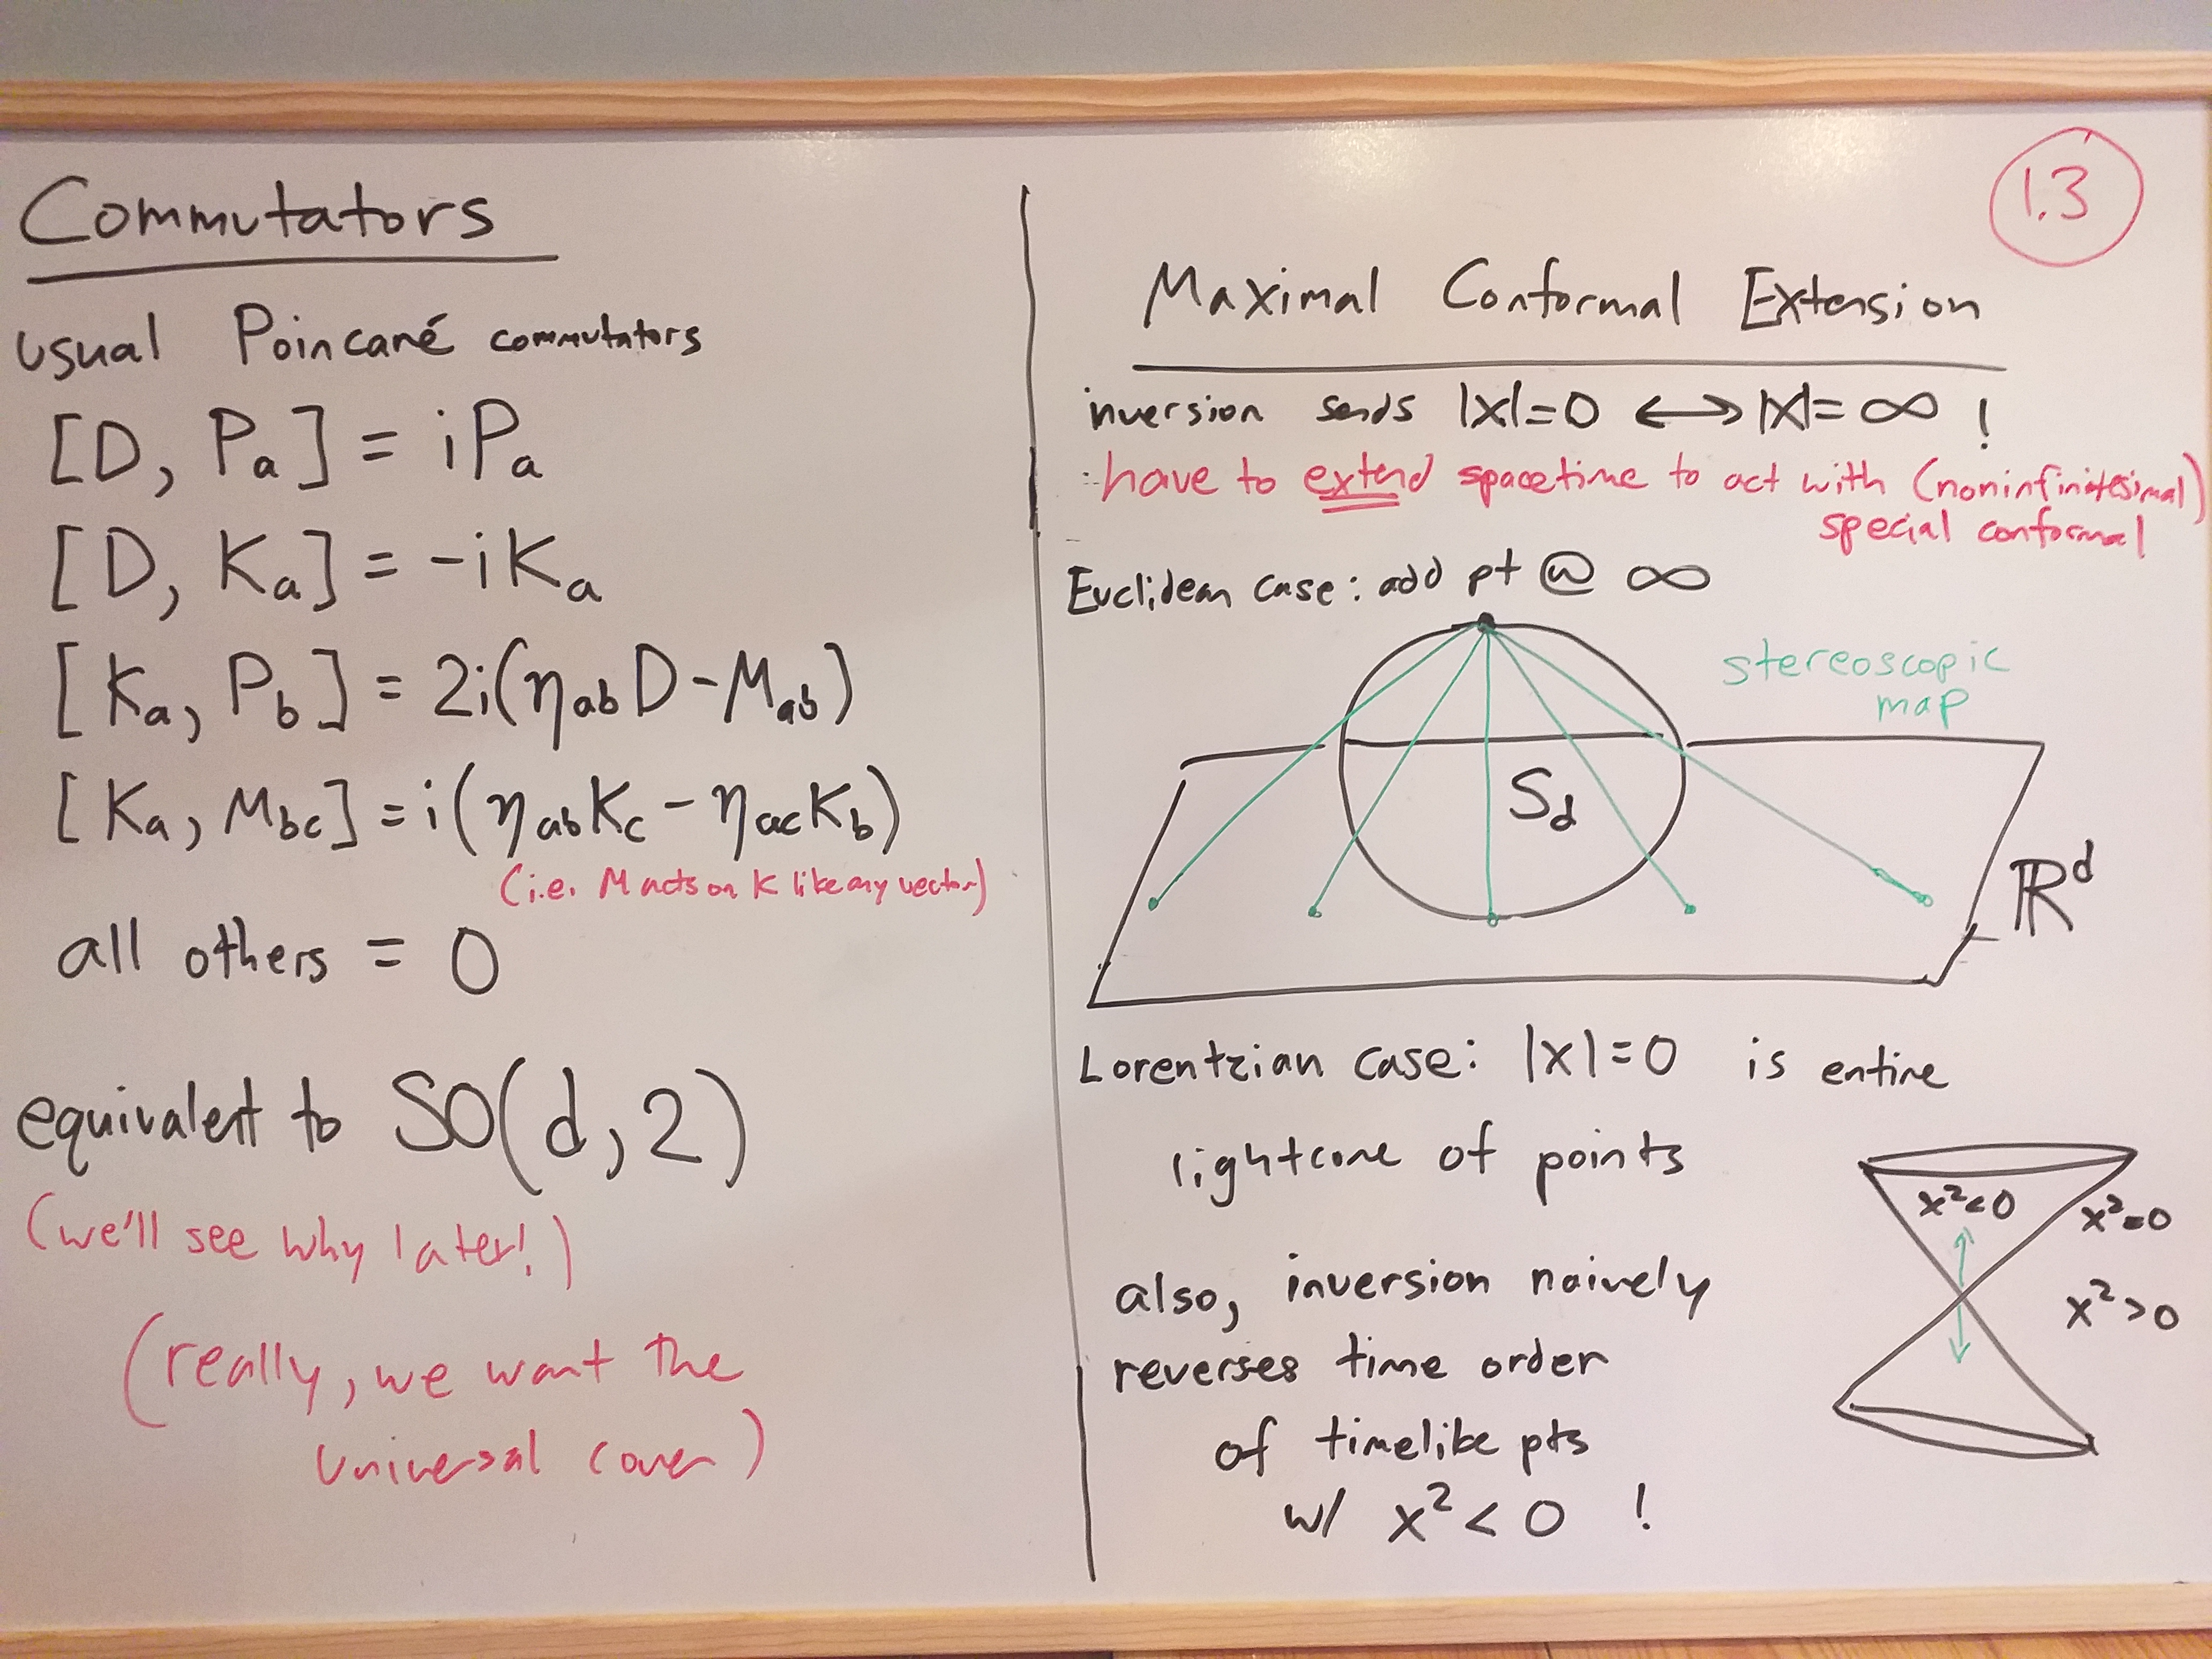 Commutators
usual Poincaré commutators
[D, Pa] = iPa
[D, Ka] = -iKa
[Ka, Pb] = 2i(ηab D - Mab)
[Ka, Mbc] = i(ηab Kc - ηac Kb)
(i.e. M acts on K like any vector)
all others = 0
equivalent to SO(d,2)
(we'll see why later!)
(really, we want the
universal cover)
1.3
Maximal Conformal Extension
inversion sends |x|=0 ↔ |x|=∞ !
∴ have to extend spacetime to act with (noninfinitesimal)
special conformal
Euclidean case: add pt @ ∞
stereoscopic
map
Sd
ℝᵈ
Lorentzian case: |x|=0 is entire
lightcone of points
x²<0
x²=0
x²>0
also, inversion naively
reverses time order
of timelike pts
w/ x² < 0 !